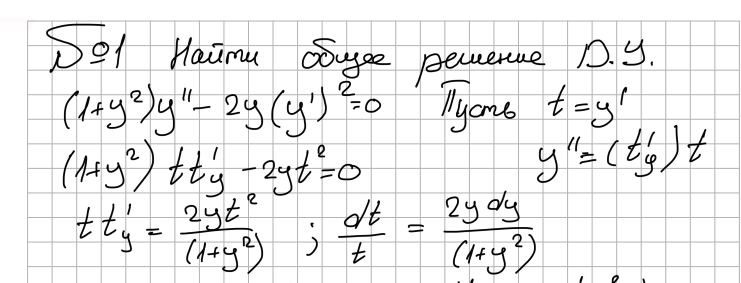 №1 Найти общее решение Д.У.
(1+y²)y'' - 2y(y')²=0 Пусть t=y'
(1+y²) tt'y - 2yt²=0 y''=(t'y)t
tt'y = 2yt²/(1+y²) ; dt/t = 2ydy/(1+y²)